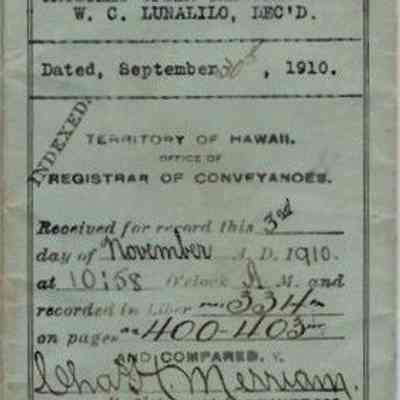 W. C. LUNALILO, DEC'D.
Dated, September 30th, 1910.
INDEXED.
TERRITORY OF HAWAII.
OFFICE OF
REGISTRAR OF CONVEYANCES.
Received for record this 3rd
day of November A. D. 1910.
at 10:58 o'clock A M. and
recorded in Liber 334
on pages 400-403
AND COMPARED.
Chas. H. Merriam.